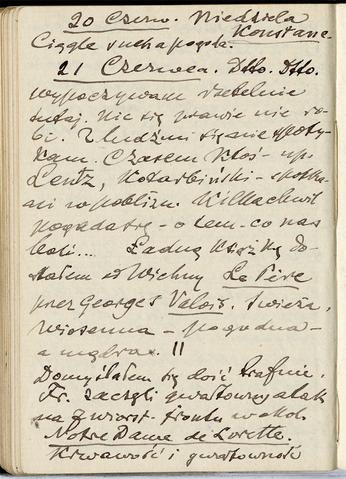 20 Czerw. Niedziela
Konstanc.
Ciągle sucha pogoda.
21 Czerwca. Dtto. Dtto.
wypoczywam rzetelnie
tutaj. Nic się prawie nie ro-
bi. Z ludźmi się nie spoty-
kam. Czasem ktoś - np.
Lentz, Kotarbiński - spotka-
ni w pobliżu. Kilka chwil
pogada się - o tem - co nas
boli... Ładną książkę do-
stałem od Wichny Le Père
przez Georges Valois. Świeża,
wiosenna - pogodna -
a mądra. !!
Domyślałem się dość trafnie.
Fr. zaczęli gwałtowny atak
na wiorst. frontu w okol.
Notre Dame de Lorette.
Krwawość i gwałtowność